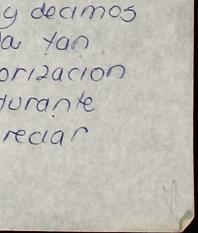 y decimos
a tan
orización
durante
reciar